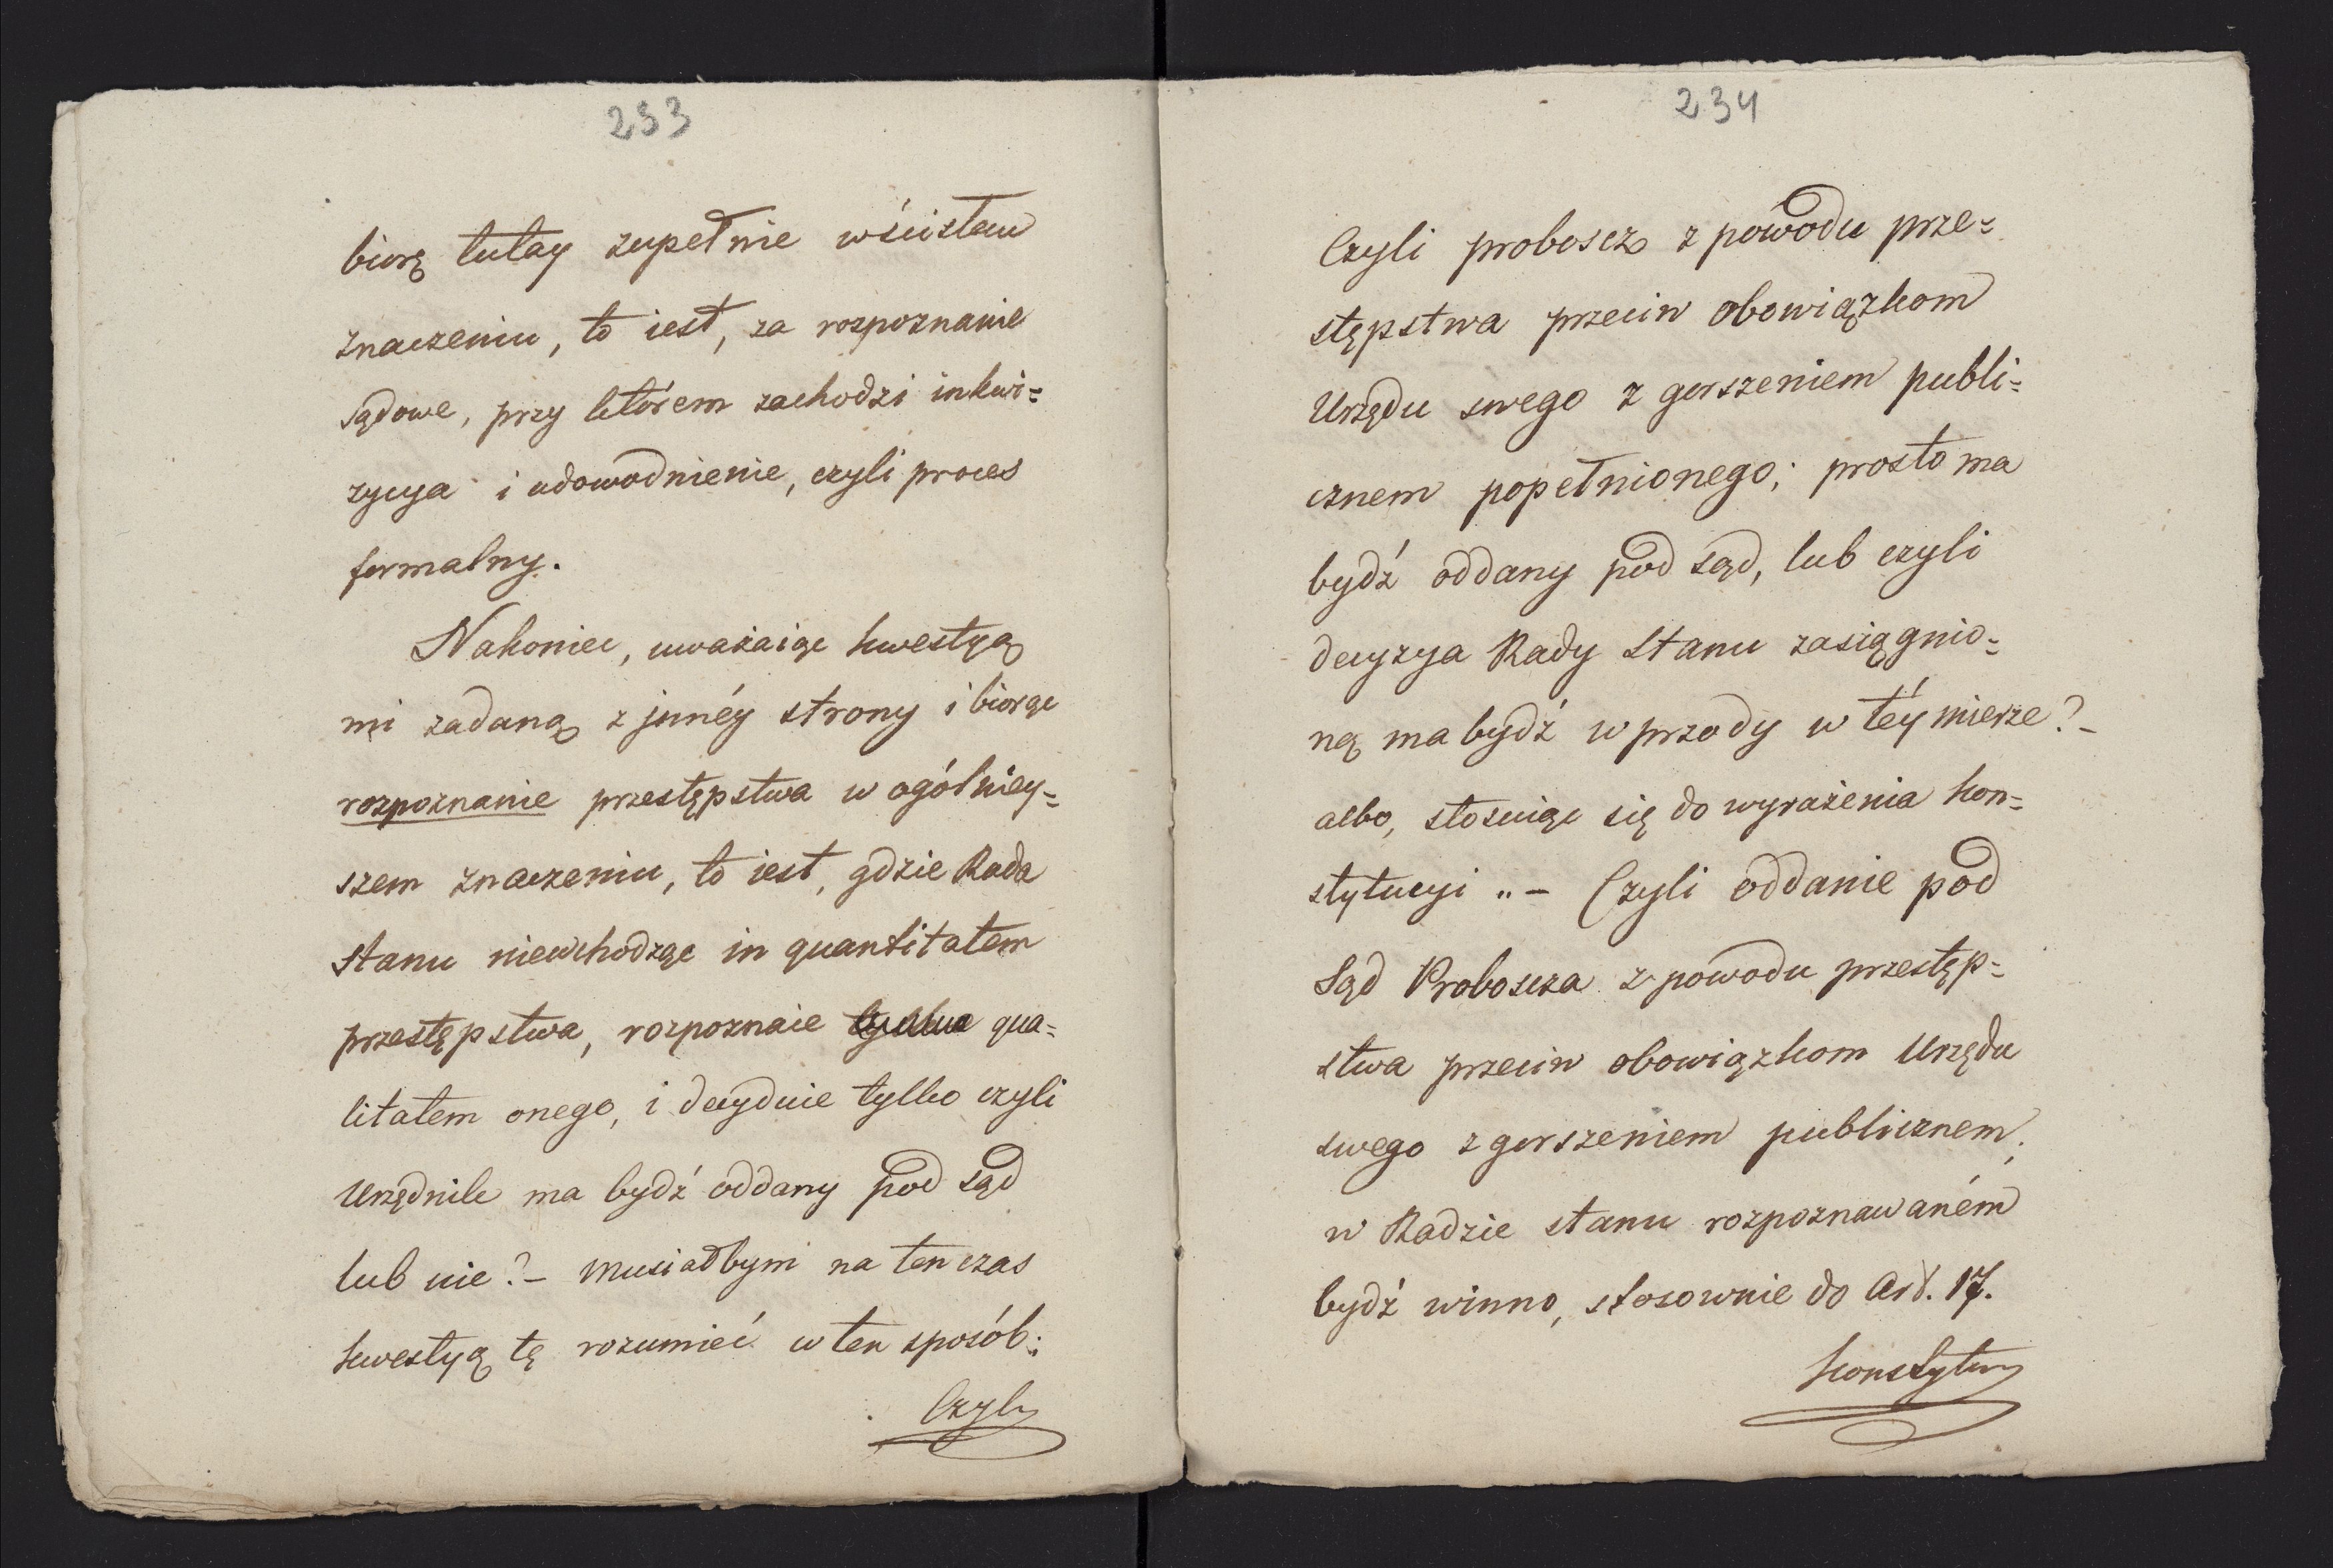 233
biorę tutay zupełnie w ścisłem
znaczeniu, to iest, za rozpoznanie
sądowe, przy którem zachodzi inkwi=
zycya i udowodnienie, czyli proces
formalny.
Nakoniec, uważaiąc kwestyą
mi zadaną z jnnéy strony i biorąc
rozpoznanie przestępstwa w ogólniey=
szem znaczeniu, to iest, gdzie Rada
Stanu niewchodząc in quantitatem
przestępstwa, rozpoznaie qua=
litatem onego, i decyduie tylko czyli
Urzędnik ma bydź oddany pod sąd
lub nie? - Musiałbym na ten czas
kwestyą tę rozumieć w ten sposób:
Czyli
234
Czyli proboscz z powodu prze=
stępstwa przeciw obowiązkom
Urzędu swego z gorszeniem publi=
cznem popełnionego; prosto ma
bydź oddany pod sąd, lub czyli
decyzya Rady Stanu zasiągnio=
ną ma bydź w przody w téy mierze? -
albo, stosuiąc się do wyrażenia kon=
stytucyi „ - Czyli oddanie pod
Sąd Proboscza z powodu przestęp=
stwa przeciw obowiązkom Urzędu
swego z gorszeniem publicznem,
w Radzie stanu rozpoznawaném
bydź winno, stosownie do Art. 17.
Konstytucyi